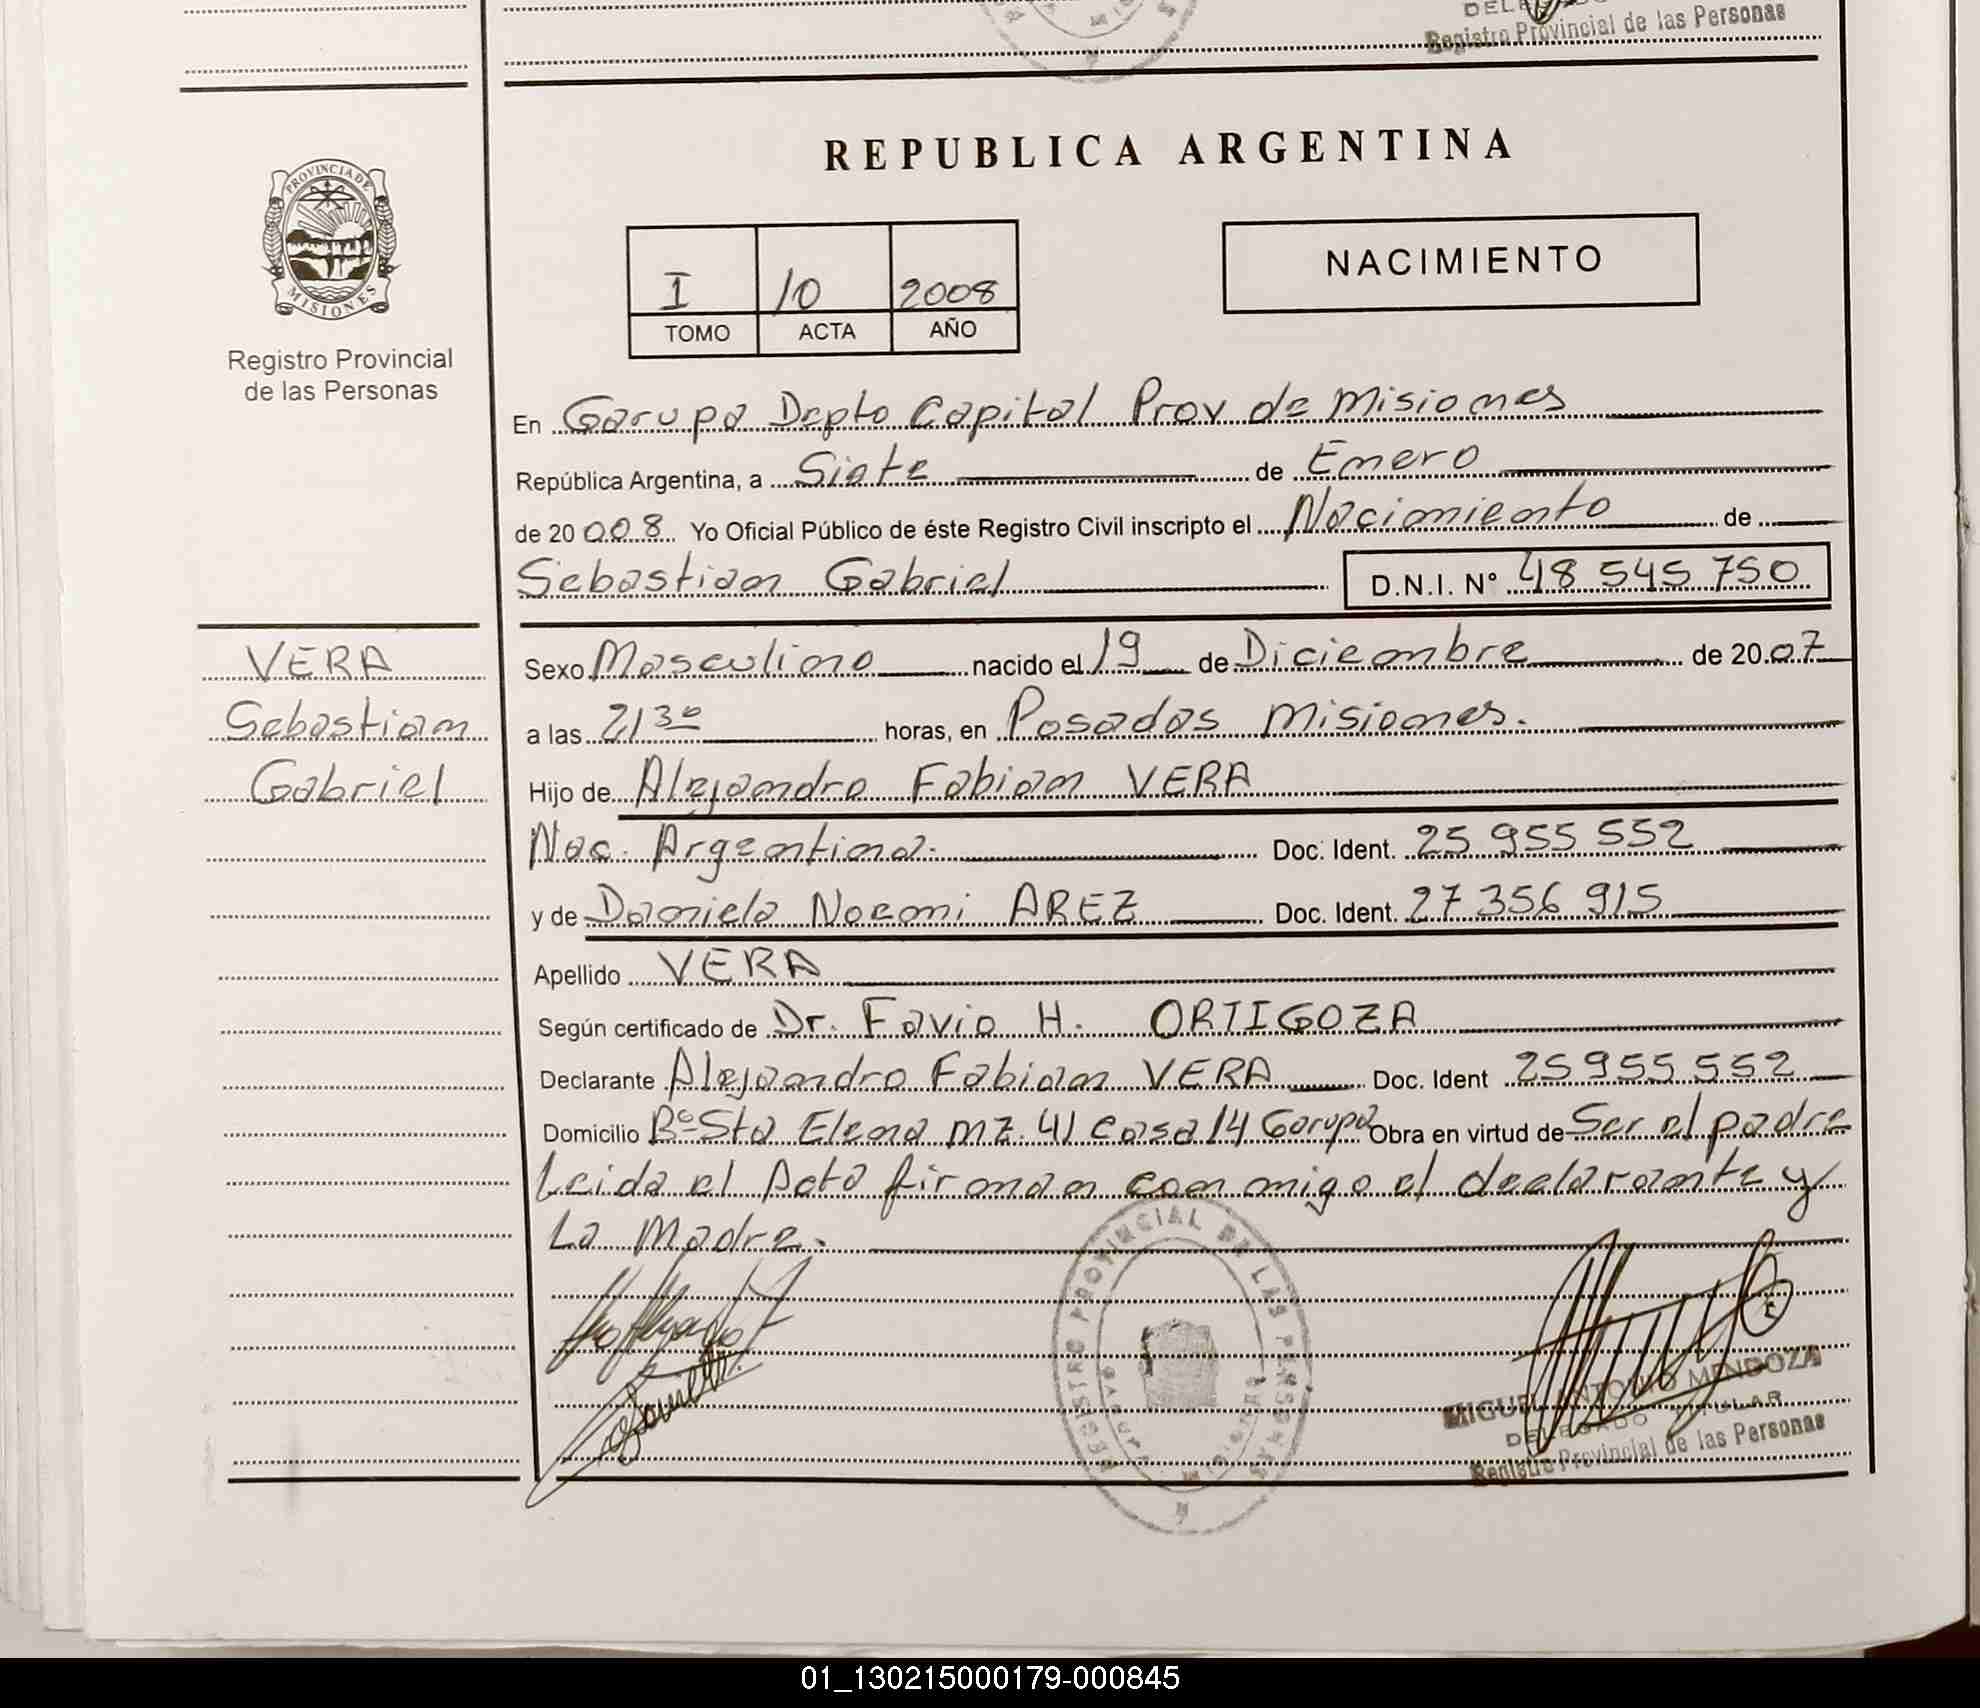 DELEGADO
Registro Provincial de las Personas
REPUBLICA ARGENTINA
PROVINCIA DE
MISIONES
Registro Provincial
de las Personas
I 10 2008
TOMO ACTA AÑO
NACIMIENTO
En Garupa Depto Capital Prov de Misiones
República Argentina, a Siete de Enero
de 20 008 Yo Oficial Público de éste Registro Civil inscripto el Nacimiento de
Sebastian Gabriel D.N.I. N° 48 545 750
VERA
Sebastian
Gabriel
Sexo Masculino nacido el 19 de Diciembre de 20 07
a las 21 30 horas, en Posadas Misiones.
Hijo de Alejandro Fabian VERA
Nac. Argentina. Doc. Ident. 25 955 552
y de Daniela Noemi AREZ Doc. Ident. 27 356 915
Apellido VERA
Según certificado de Dr. Favio H. ORTIGOZA
Declarante Alejandro Fabian VERA Doc. Ident 25955 552
Domicilio B° Sta Elena mz. 41 Casa 14 Garupa Obra en virtud de Ser el padre
Leida el Acta firman con migo el declarante y
La Madre.
REGISTRO PROVINCIAL DE LAS PERSONAS
MISIONES
MIGUEL ANTONIO MENDOZA
DELEGADO TITULAR
Registro Provincial de las Personas
01_130215000179-000845